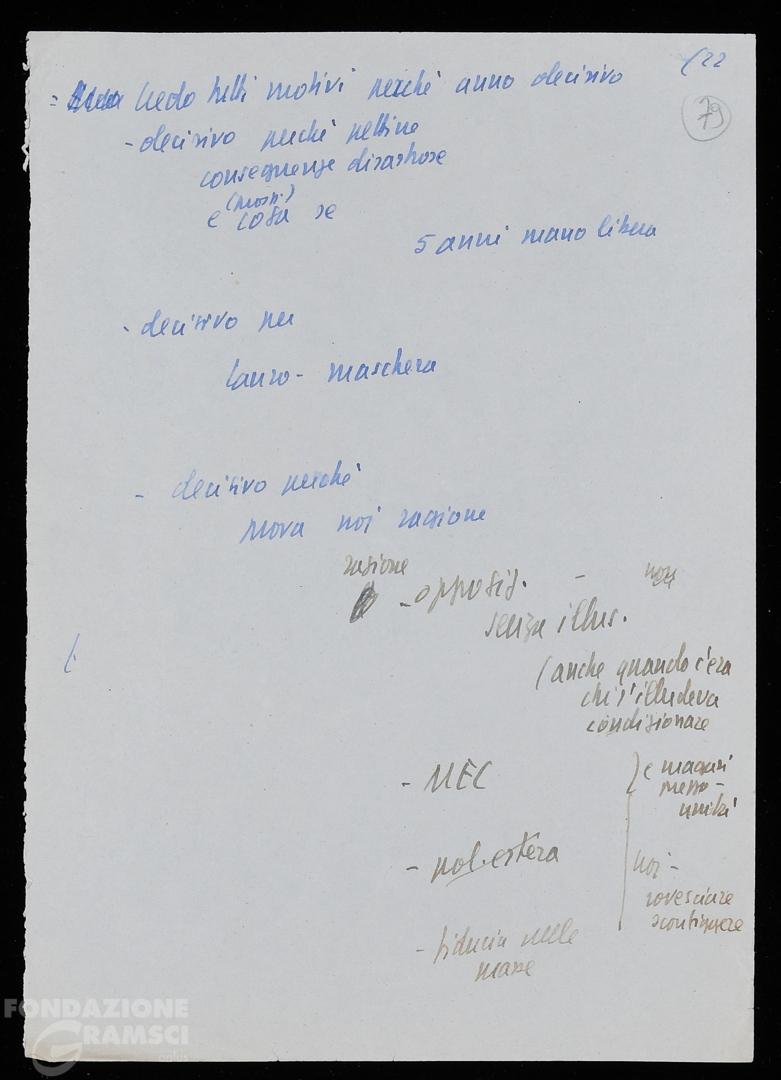 (22
79
= Credo tutti motivi perché anno decisivo
- decisivo perché
conseguenze disastrose
(pross.)
e cosa se
5 anni mano libera
- decisivo per
Lauro - maschera
- decisivo perché
prova noi ragione
ragione
- opposiz. - noi
senza illus.
(anche quando c'era
chi s'illudeva
condizionare
- MEC
} e magari
messo -
unità
- pol. estera
noi -
rovesciare
sconfiggere
- fiducia nelle
masse
FONDAZIONE
GRAMSCI
onlus